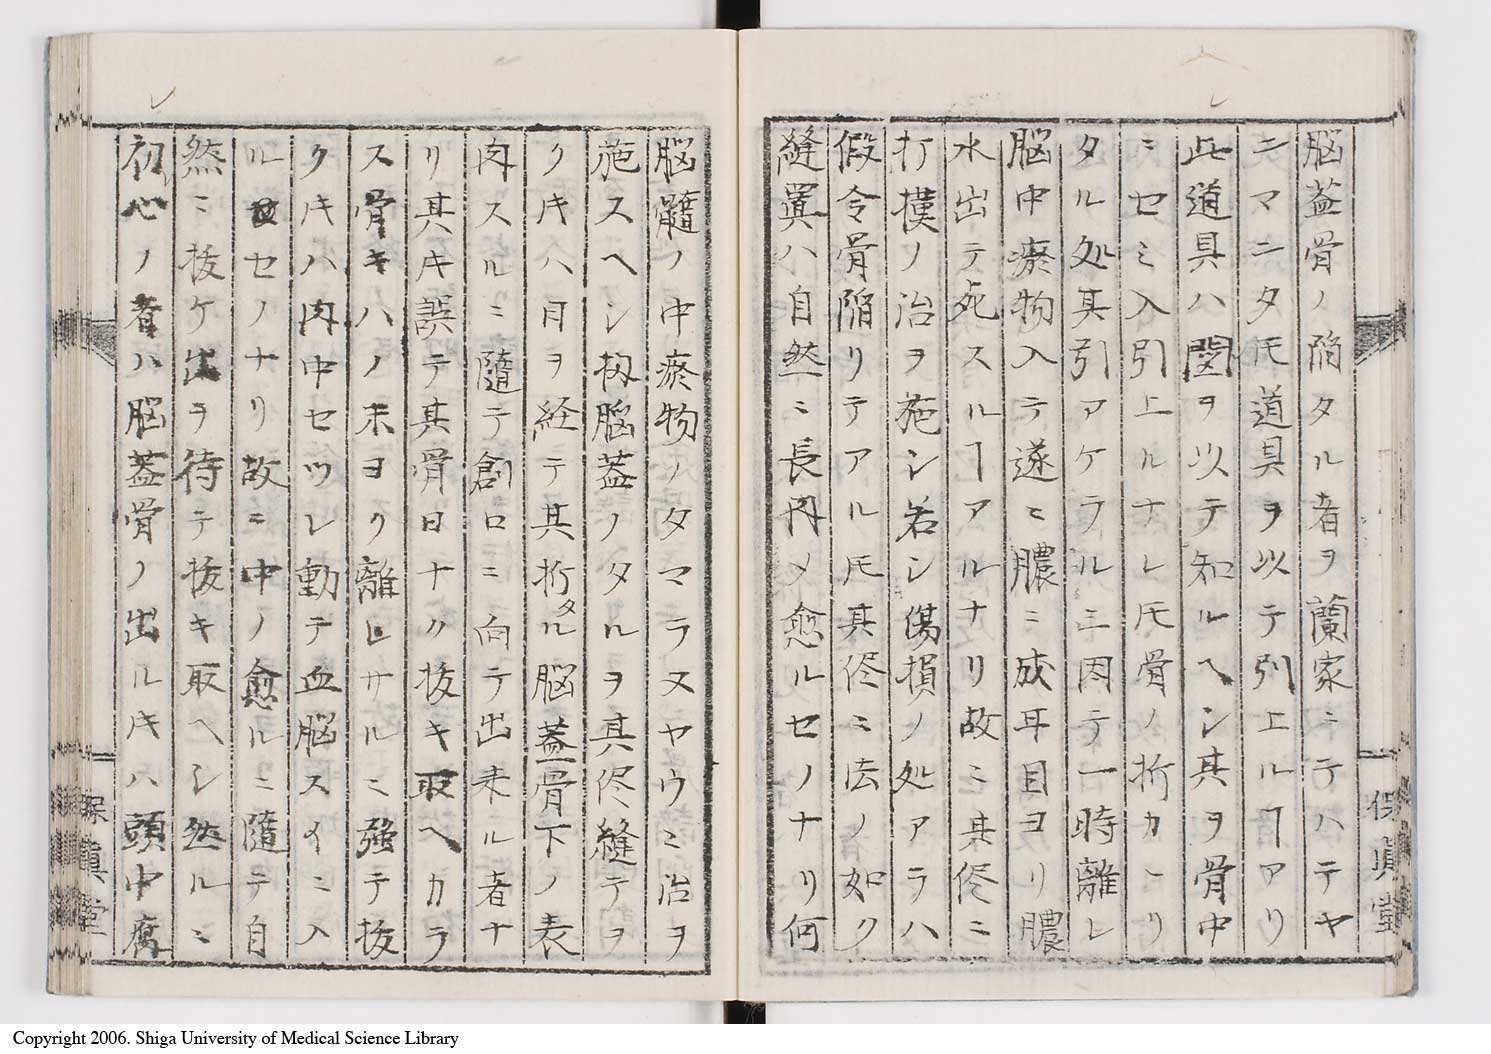 脳蓋骨ノ陥タル者ヲ蘭家ニテハテヤ
ニマニタ𪜈道具ヲ以テ引上ルヿアリ
此道具ハ図ヲ以テ知ルヘシ其ヲ骨中
ミセミ入引上ルナレ𪜈骨ノ折カヽリ
タル処其引アケラルニ因テ一時離レ
脳中瘀物入テ遂ニ膿ミ成耳目ヨリ膿
水出テ死スルヿアルナリ故ミ其侭ミ
打撲ノ治ヲ施シ若シ傷損ノ処アラハ
假令骨陥リテアル𪜈其侭ミ法ノ如ク
縫置ハ自然ミ長肉メ愈ルセノナリ何
脳髄ノ中瘀物ノタマラヌヤウミ治ヲ
施スヘシ扨脳蓋ノタルヲ其侭縫テヲ
クキハ日ヲ経テ其折タル脳蓋骨下ノ表
肉スルミ随テ創口ニ向テ出来ル者ナ
リ其キ誤テ其骨日ミナク抜キ取ヘカラ
ス骨キハノ未ヨク離レサルミ強テ抜
クキハ肉中セツレ動テ血脳スイミ入
ルセノナリ故ニ中ノ愈ルミ随テ自
然ミ抜ケ出ヲ待テ抜キ取ヘシ然ルミ
初心ノ者ハ脳蓋骨ノ出ルキハ頭中腐
保真堂
Copyright 2006. Shiga University of Medical Science Library